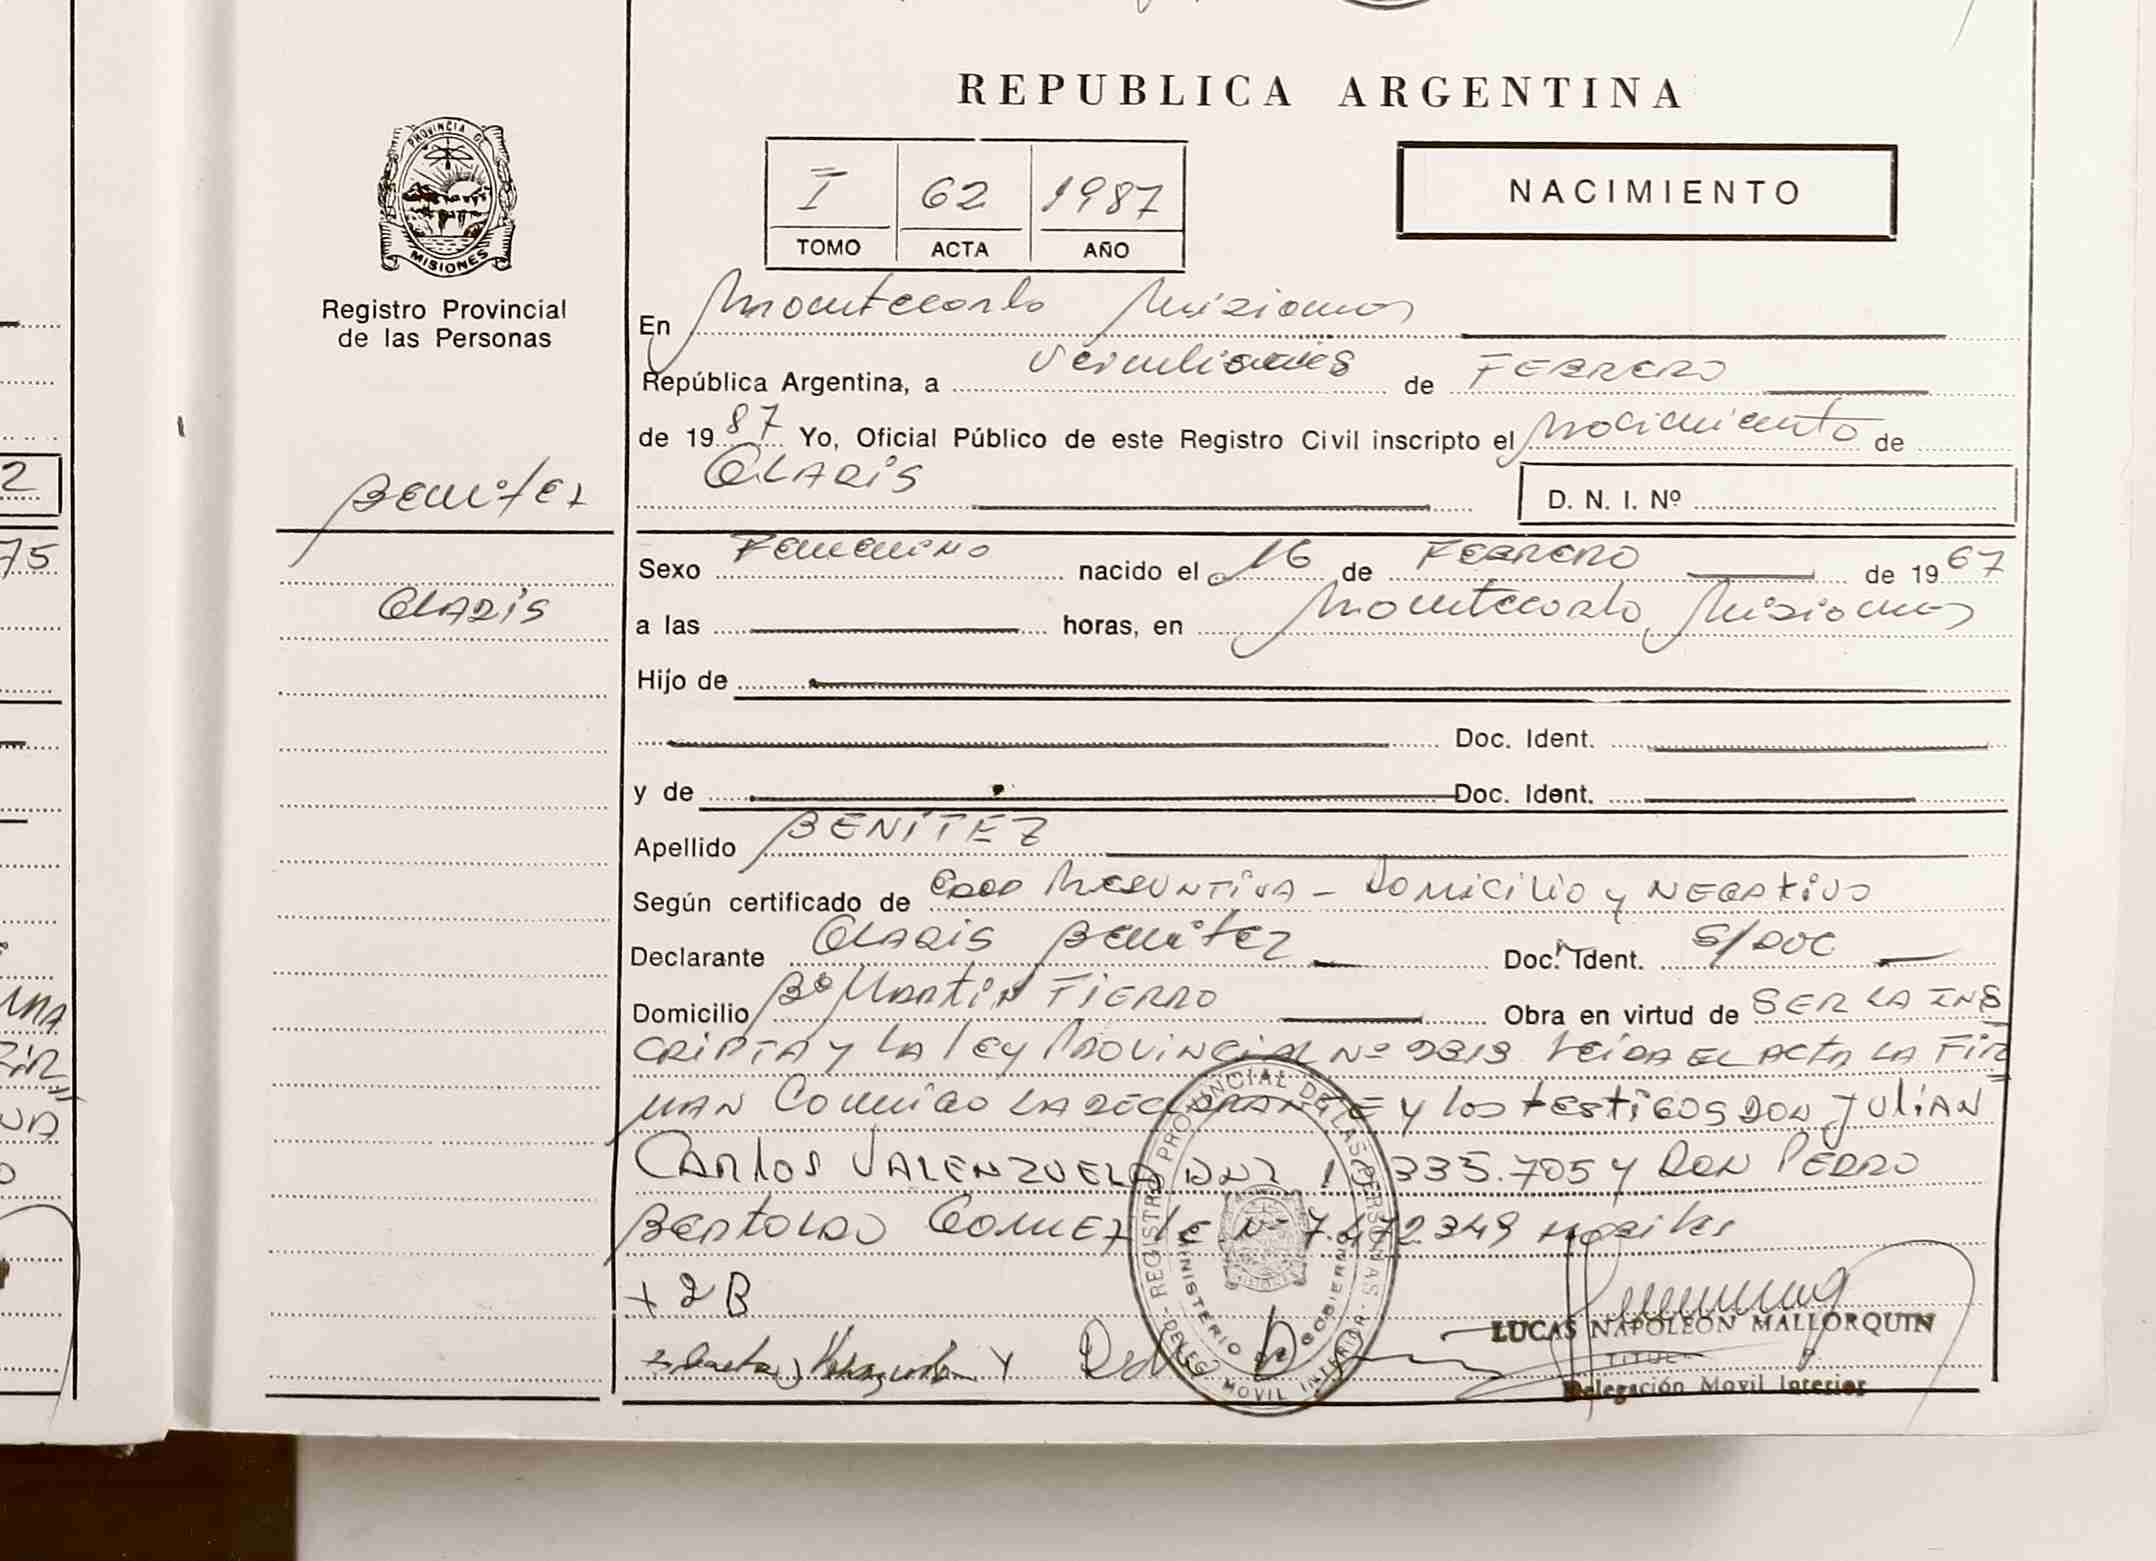 REPUBLICA ARGENTINA
PROVINCIA DE
MISIONES
Registro Provincial
de las Personas
I 62 1987
TOMO ACTA AÑO
NACIMIENTO
En Montecarlo Misiones
República Argentina, a veintiseis de FEBRERO
de 1987 Yo, Oficial Público de este Registro Civil inscripto el Nacimiento de
CLARIS
D. N. I. Nº
Benitez
CLARIS
Sexo Femenino nacido el 16 de FEBRERO de 1967
a las horas, en Montecarlo Misiones
Hijo de
Doc. Ident.
y de Doc. Ident.
Apellido BENÍTEZ
Según certificado de EDAD PRESUNTIVA - DOMICILIO y NEGATIVO
Declarante CLARIS Benitez Doc. Ident. S/DOC
Domicilio Bº MARTIN FIERRO Obra en virtud de SER LA INS
CRIPTA y LA ley PROVINCIAL Nº 2319 leída EL ACTA LA FIR
MAN Conmigo LA DECLARANTE y los testigos DON JULIAN
CARLOS VALENZUELA DNI 335.705 y DON PEDRO
BERTOLDO GOMEZ LE Nº 7.472349
+ 2B
REGISTRO PROVINCIAL DE LAS PERSONAS
MINISTERIO DE GOBIERNO
DELEG. MOVIL INTERIOR
LUCAS NAPOLEON MALLORQUIN
Delegación Movil Interior
2
75